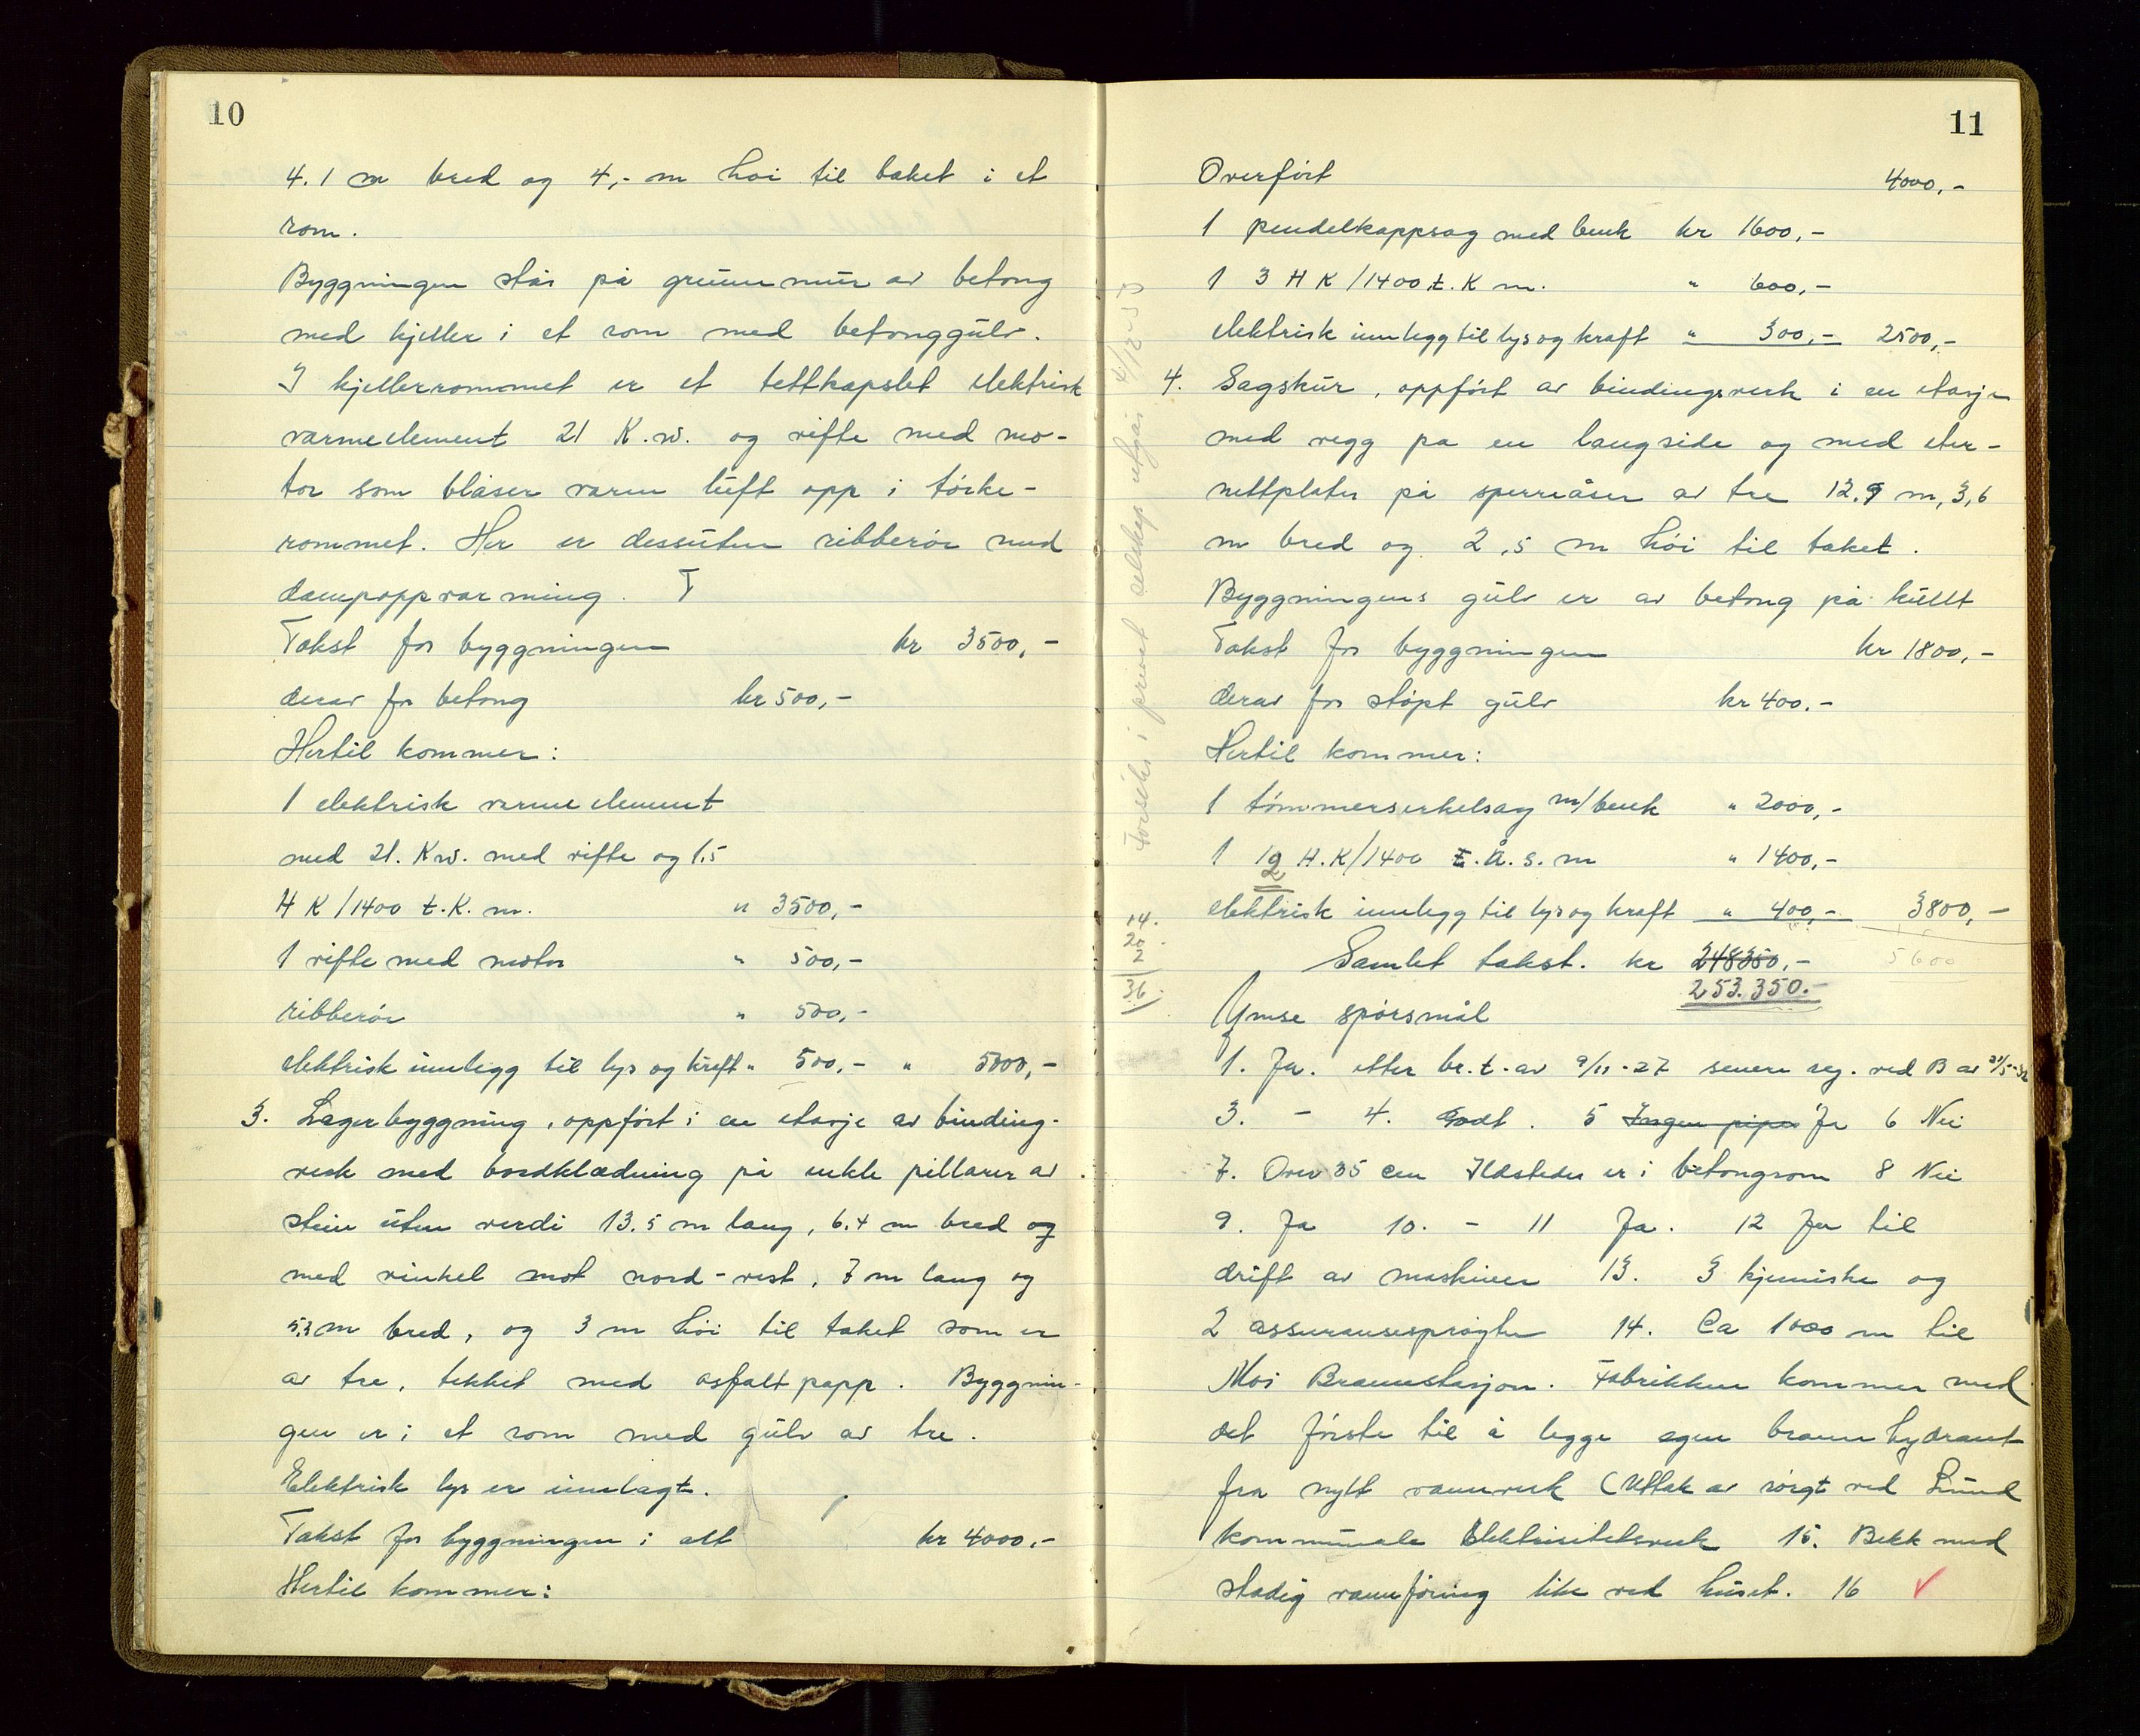 10
4.1 m bred og 4,- m høi til taket i et
rom.
Byggningen står på grunnmur av betong
med kjeller i et rom med betonggulv.
I kjellerrommet er et tettkapslet elektrisk
varmeelement 21 K.w. og vifte med mo-
tor som blåser varm luft opp i tørke-
rommet. Her er dessuten ribberør med
dampoppvarming. T
Takst for byggningen kr 3500,-
derav for betong kr 500,-
Hertil kommer:
1 elektrisk varmeelement
med 21. Kw. med vifte og 1.5
H K/1400 t.K.m. " 3500,-
1 vifte med motor " 500,-
ribberør " 500,-
elektrisk innlegg til lys og kreft " 500,- " 5000,-
3. Lagerbyggning, oppført i en etasje av binding-
verk med bordklædning på enkle pillarer av
stein uten verdi 13.5 m lang, 6.4 m bred og
med vinkel mot nord-vest, 7 m lang og
5.3 m bred, og 3 m høi til taket som er
av tre, tekket med asfaltpapp. Byggnin-
gen er i et rom med gulv av tre.
Elektrisk lys er innlagt.
Takst for byggningen i alt kr 4000.-
Hertil kommer:
11
Overført 4000,-
1 pendelkappsag med benk kr 1600,-
1 3 H K/1400 t.K m. " 600,-
elektrisk innlegg til lys og kraft " 300,- 2500,-
4. Sagskur, oppført av bindingsverk i en etasje
med vegg på en langside og med eter-
nettplater på sperreåser av tre 12.9 m, 3,6
m bred og 2,5 m høi til taket.
Byggningens gulv er av betong på kullt
Takst for byggningen kr 1800,-
derav for støpt gulv kr 400.-
Hertil kommer:
1 tømmersirkelsag m/benk " 2000,-
1 12 H.K/1400 t.Å.s.m " 1400,-
2
elektrisk innlegg til lys og kraft " 400,- 3800,-
Samlet takst. kr 248350,- 5600
253.350.-
14.
20
2
36
Ymse spørsmål
1. Ja. etter br.t. av 9/11-27 senere reg. ved B av
3. - 4. Godt. 5 Ingen piper Ja 6 Nei
7. Over 35 cm Ildsteder er i betongrom 8 Nei
9. Ja 10. - 11 Ja. 12 Ja til
drift av maskiner 13. 3 kjemiske og
2 assuransesprøyter 14. Ca 1000 m til
Moi Brannstasjon. Fabrikken kommer med
det første til å legge egen brannhydrant
fra nytt vannverk (Uttak av rørgt ved Lund
kommunale Elektrisitetsverk 15. Bekk med
stadig vannføring like ved huset. 16